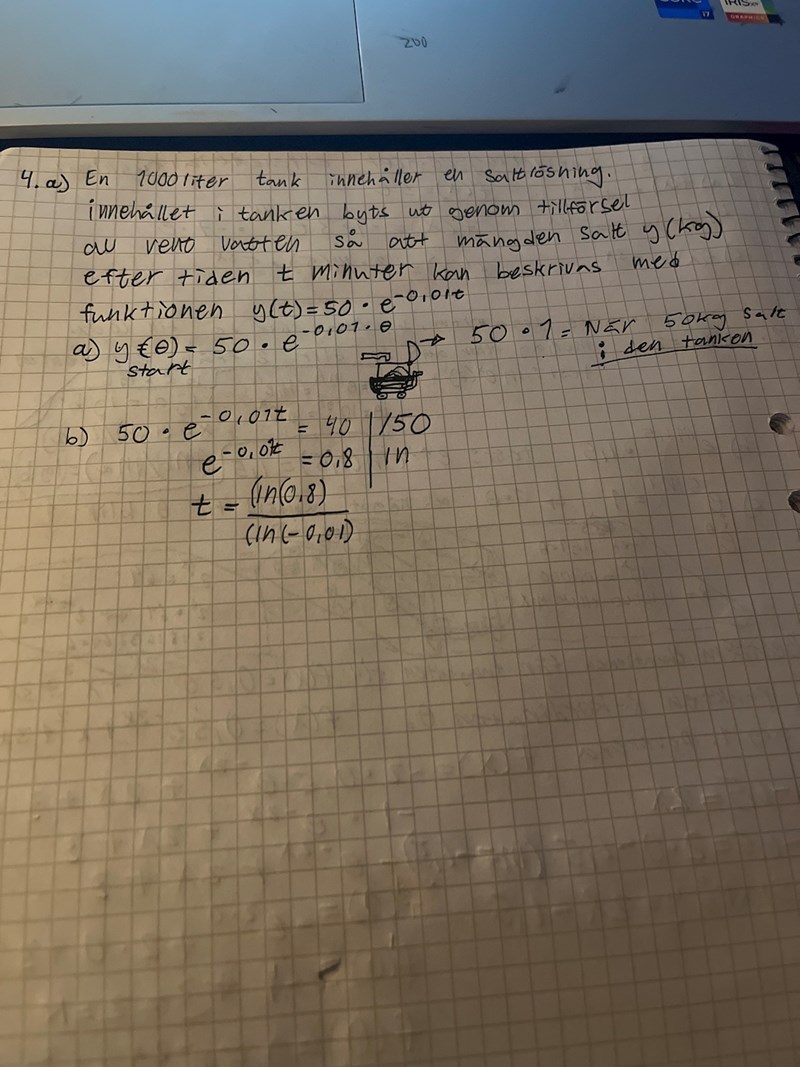 CORE
i7
IRIS xe
GRAPHICS
200
4. a) En 1000 liter tank innehåller en saltlösning.
innehållet i tanken byts ut genom tillförsel
av rent vatten så att mängden salt y (kg)
efter tiden t minuter kan beskrivas med
funktionen y(t) = 50 · e^-0,01t
a) y(0) = 50 · e^-0,01·0 → 50 · 1 = När 50kg salt
start i den tanken
b) 50 · e^-0,01t = 40 | /50
e^-0,01t = 0,8 | ln
t = (ln(0,8)
(ln(-0,01)